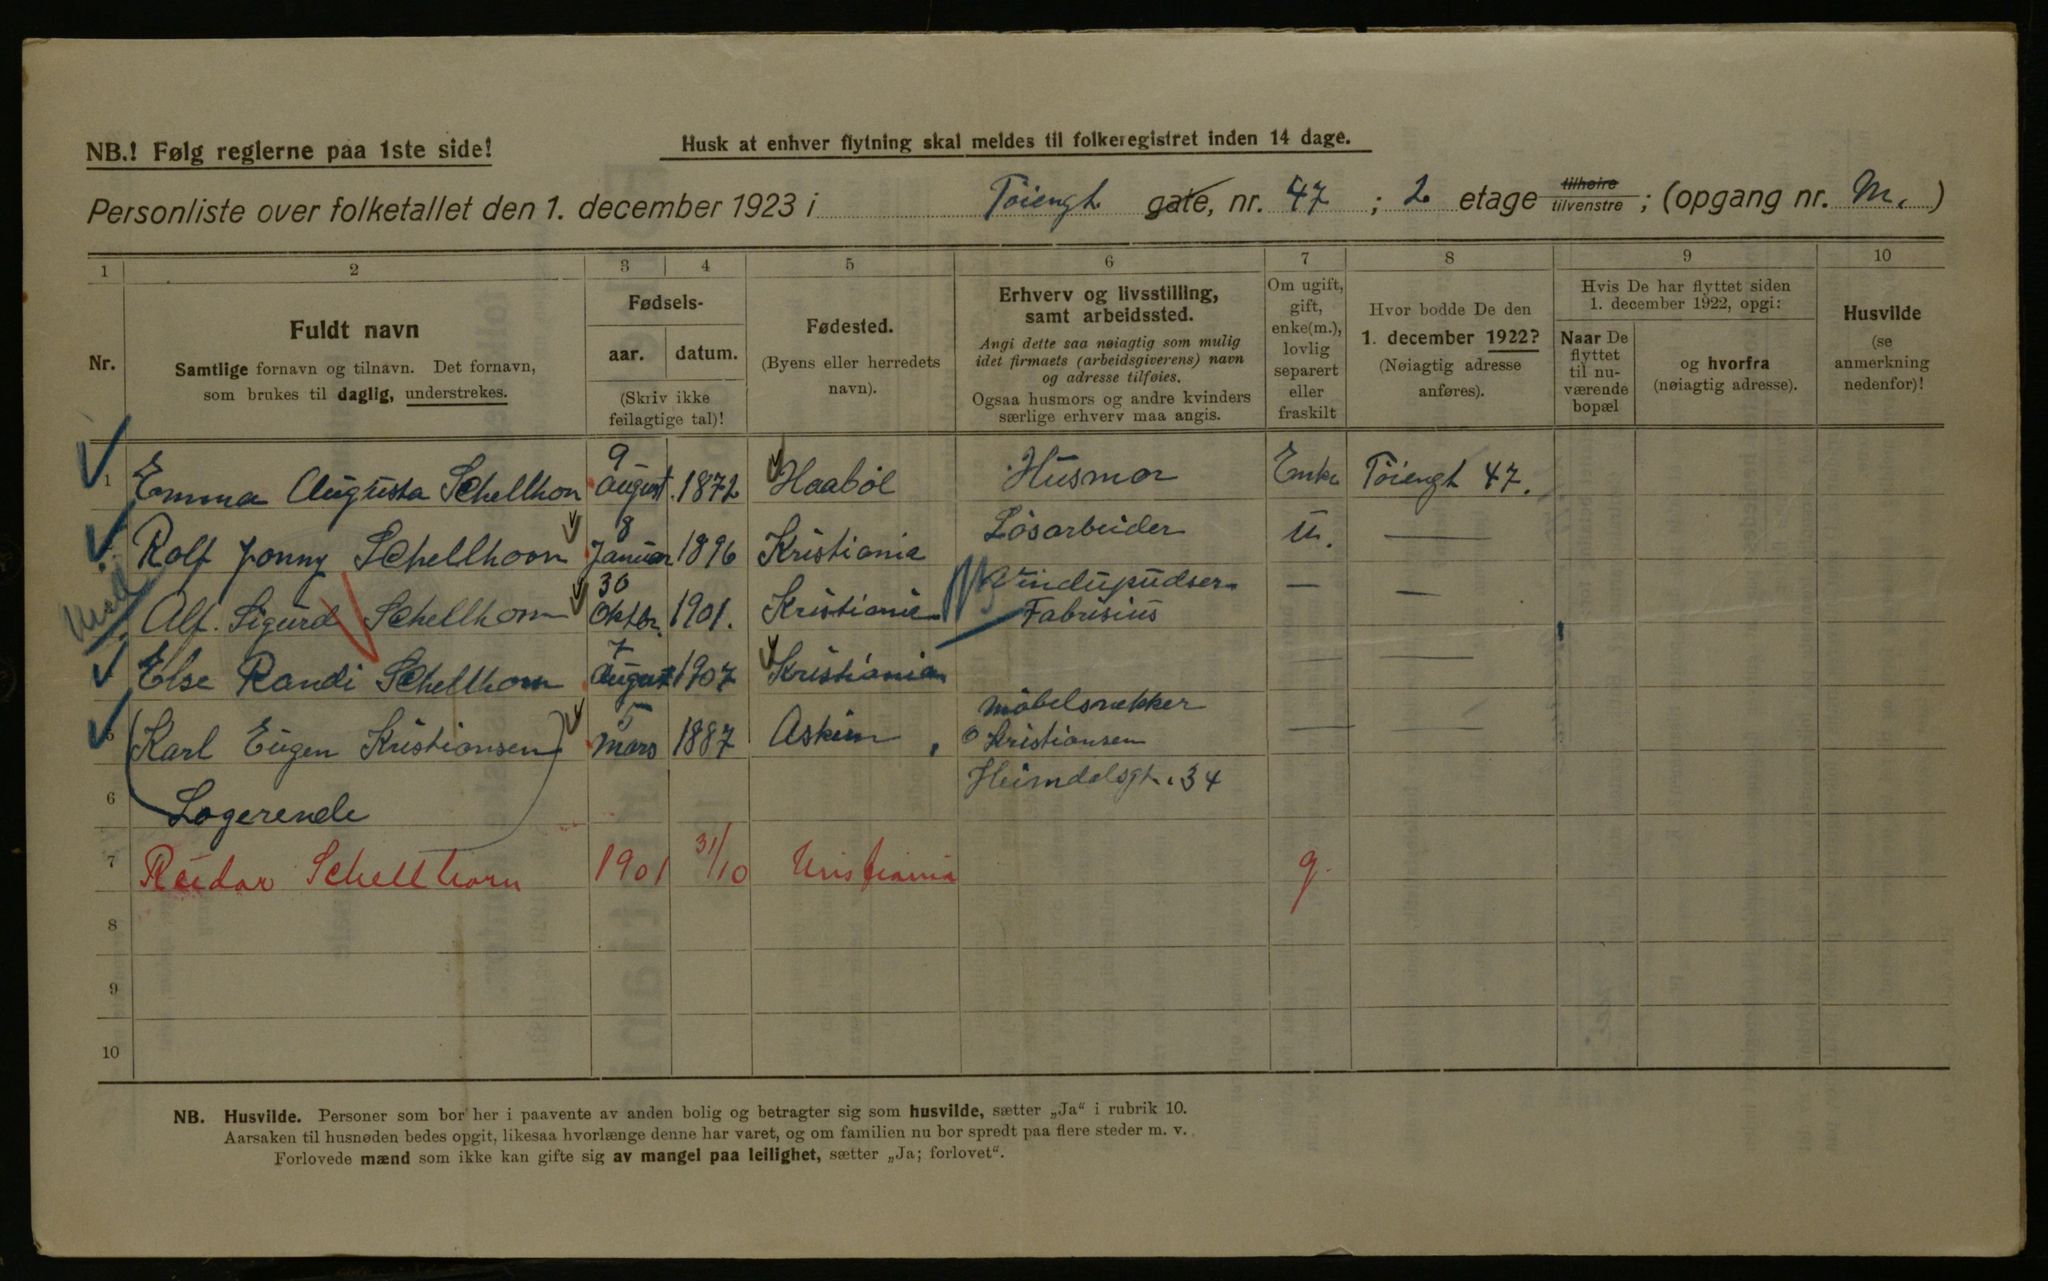 NB.! Følg reglerne paa 1ste side!
Husk at enhver flytning skal meldes til folkeregistret inden 14 dage.
Personliste over folketallet den 1. december 1923 i Töiengt. gate, nr. 47 ; 2 etage tilhøire tilvenstre ; (opgang nr. M. )
1 2 3 4 5 6 7 8 9 10
Nr.
Fuldt navn
Samtlige fornavn og tilnavn. Det fornavn,
som brukes til daglig, understrekes.
Fødsels-
aar. datum.
(Skriv ikke
feilagtige tal)!
Fødested.
(Byens eller herredets
navn).
Erhverv og livsstilling,
samt arbeidssted.
Angi dette saa nøiagtig som mulig
idet firmaets (arbeidsgiverens) navn
og adresse tilføies.
Ogsaa husmors og andre kvinders
særlige erhverv maa angis.
Om ugift,
gift,
enke(m.),
lovlig
separert
eller
fraskilt
Hvor bodde De den
1. december 1922?
(Nøiagtig adresse
anføres).
Hvis De har flyttet siden
1. december 1922, opgi:
Naar De
flyttet
til nu-
værende
bopæl
og hvorfra
(nøiagtig adresse).
Husvilde
(se
anmerkning
nedenfor)!
1 Emma Augusta Schellhon 9 August. 1872 Haaböl Husmor Enke Töiengt 47.
Rolf Jonny Schellhorn 8 Januar 1896 Kristiania Lösarbeider u. —
Alf. Sigurd Schellhorn 30 Oktbr. 1901. Kristiania Vinduspudser Fabrisius — —
Else Randi Schellhorn 7 August 1907 Kristiania — —
5 (Karl Eugen Kristiansen) 5 Mars 1887 Askim, Möbelsnekker — —
Kristiansen
6 Logerende Heimdalsgt. 34
7 Reidar Schellhorn 1901 31/10 Kristiania g.
8
9
10
NB. Husvilde. Personer som bor her i paavente av anden bolig og betragter sig som husvilde, sætter „Ja“ i rubrik 10.
Aarsaken til husnøden bedes opgit, likesaa hvorlænge denne har varet, og om familien nu bor spredt paa flere steder m. v.
Forlovede mænd som ikke kan gifte sig av mangel paa leilighet, sætter „Ja; forlovet“.